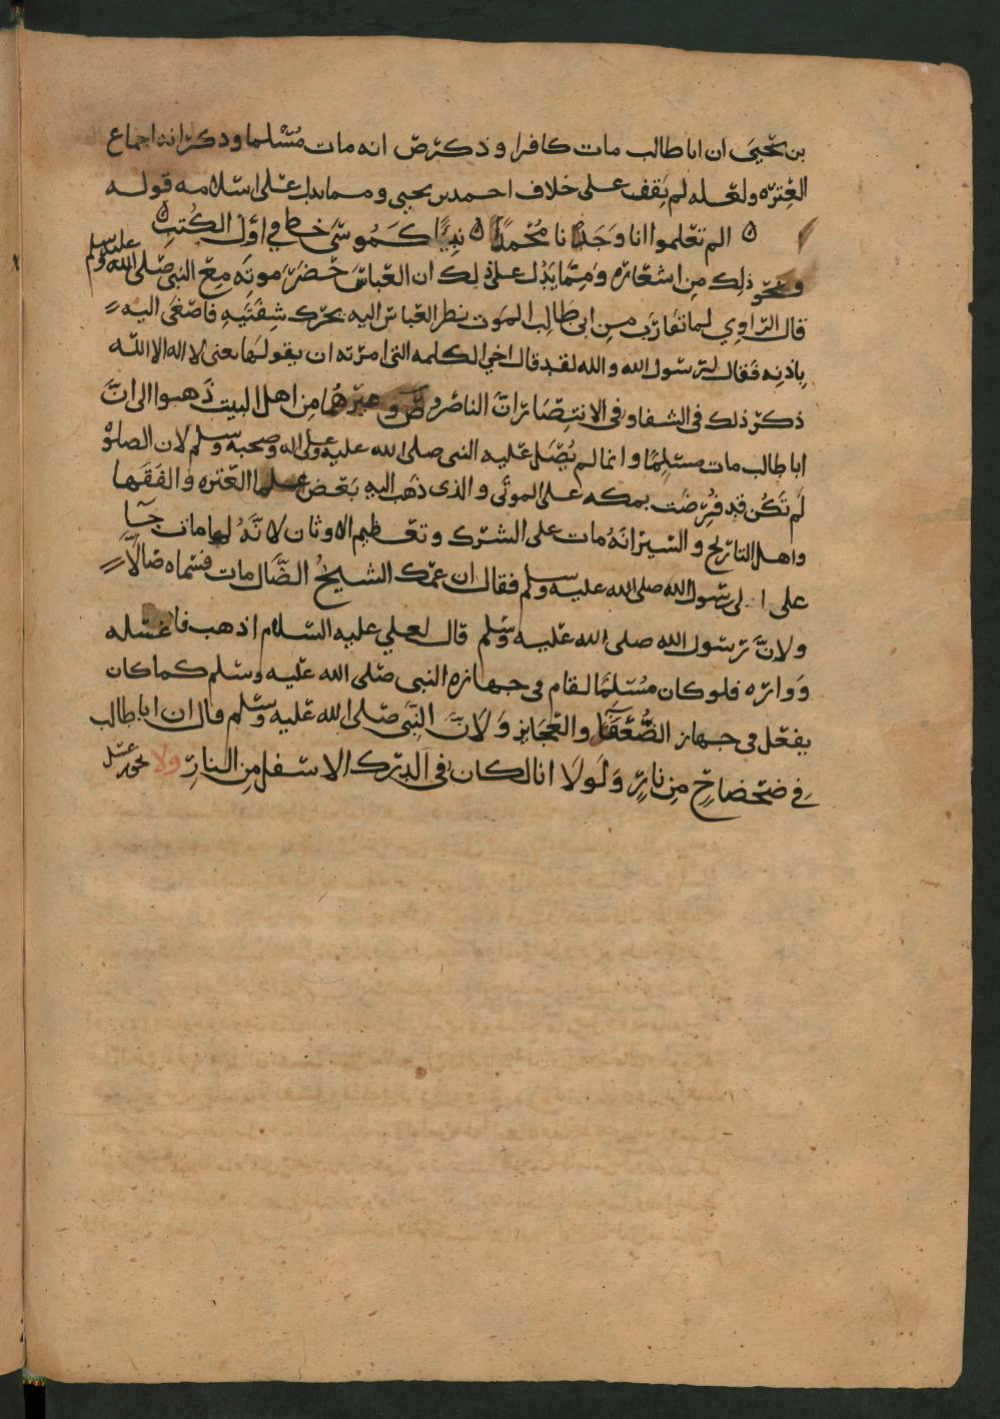 بن يحيى ان ابا طالب مات كافرا وذكر ص انه مات مسلما وذكر انه اجماع
العتره ولعله لم يقف على خلاف احمد بن يحيى ومما يدل على اسلامه قوله
الم تعلموا انا وجدنا محمدا ه نبيا كموسى خط في اول الكتب ه
ونحو ذلك من اشعاره ومما يدل على ذلك ان العباس حضر موته مع النبي صلى الله عليه وسلم
قال الراوي لما تقارب من ابي طالب الموت نظر العباس اليه يحرك شفتيه فاصغى اليه
باذنه فقال لرسول الله والله لقد قال اخي الكلمه التي امرته ان يقولها يعني لا اله الا الله
ذكر ذلك في الشفا وفي الانتصار ان الناصر وص وغيرهما من اهل البيت ذهبوا الى ان
ابا طالب مات مسلما وانما لم يصل عليه النبي صلى الله عليه وعلى اله وصحبه وسلم لان الصلوة
لم تكن قد فرضت بمكه على الموتى والذي ذهب اليه بعض علما العتره والفقها
واهل التاريخ والسير انه مات على الشرك وتعظيم الاوثان لانه لما مات جا
على الى رسول الله صلى الله عليه وسلم فقال ان عمك الشيخ الضال مات فسماه ضالا
ولان رسول الله صلى الله عليه وسلم قال لعلي عليه السلام اذهب فاغسله
وواره فلو كان مسلما لقام في جهازه النبي صلى الله عليه وسلم كما كان
يفعل في جهاز الضعفا والعجايز ولان النبي صلى الله عليه وسلم قال ان ابا طالب
في ضحضاح من نار ولولا انا لكان في الدرك الاسفل من النار ولا يجوز غسل